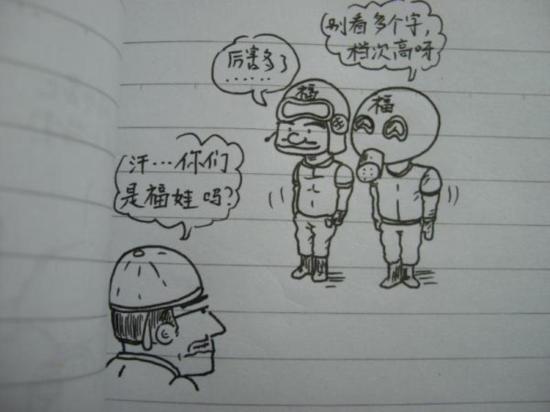 别看多个字,
档次高呀
厉害多了
......
福
福
汗...你们
是福娃吗?